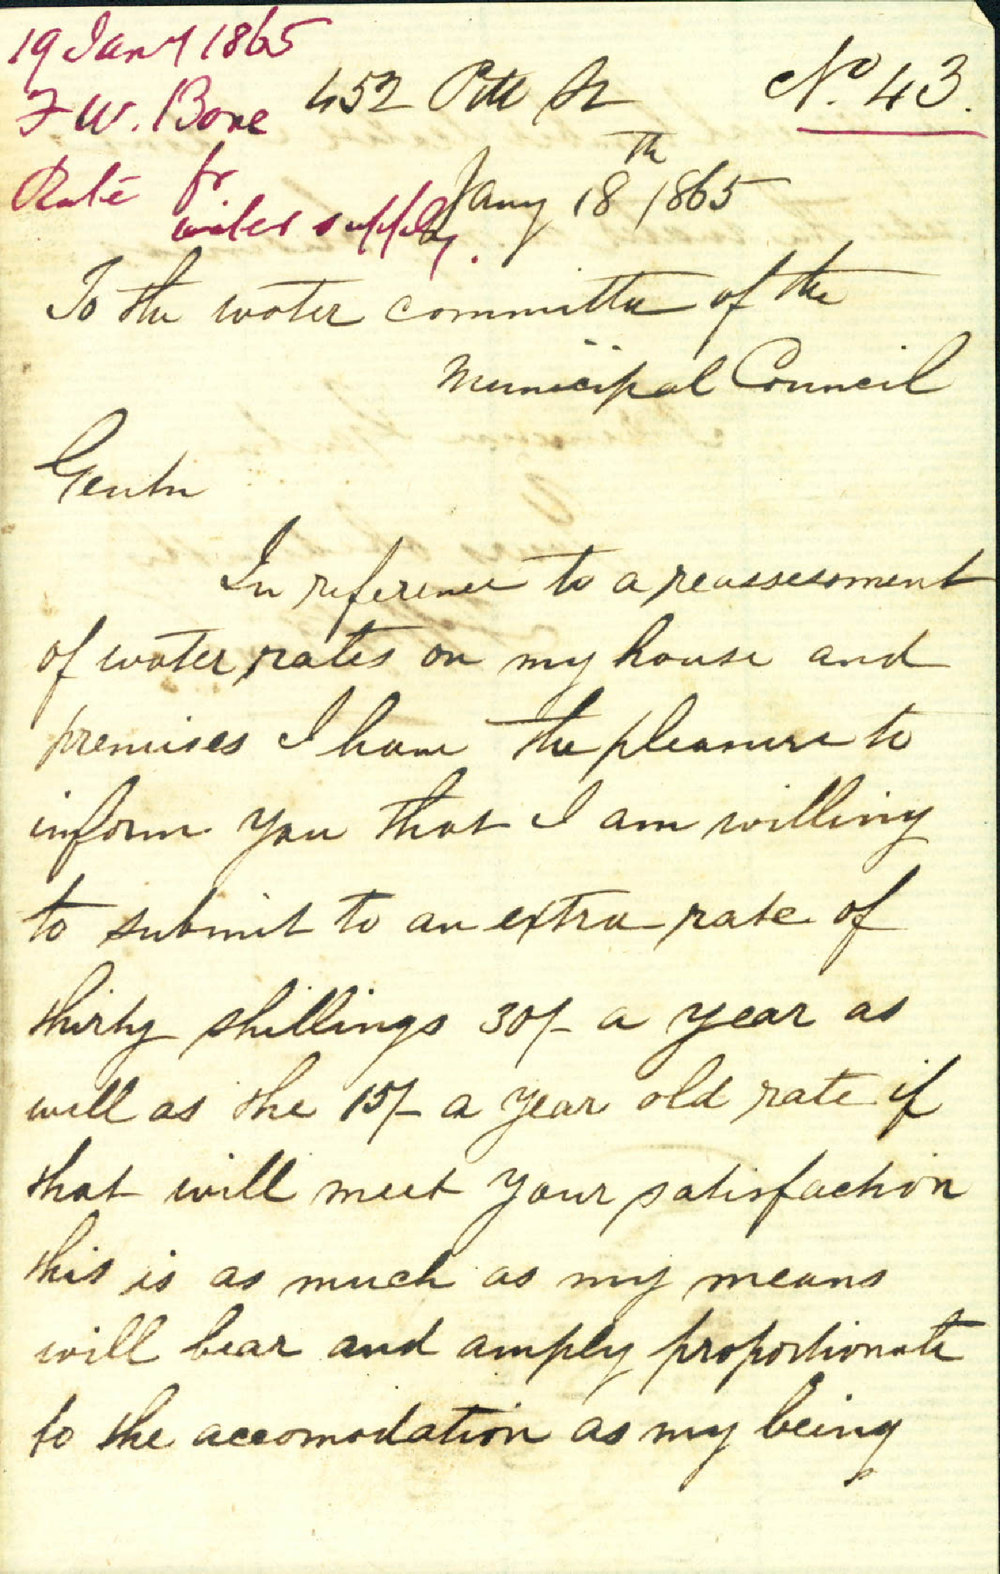 19 Jany 1865
F W. Bone
Rate for
water supply.
No. 43.
452 Pitt St
Jany 18th 1865
To the water committee of the
Municipal Council
Gentn
In reference to a reassessment
of water rates on my house and
premises I have the pleasure to
inform you that I am willing
to submit to an extra rate of
thirty shillings 30/- a year as
well as the 15/- a year old rate if
that will meet your satisfaction
this is as much as my means
will bear and amply proportionate
to the accomodation as my being